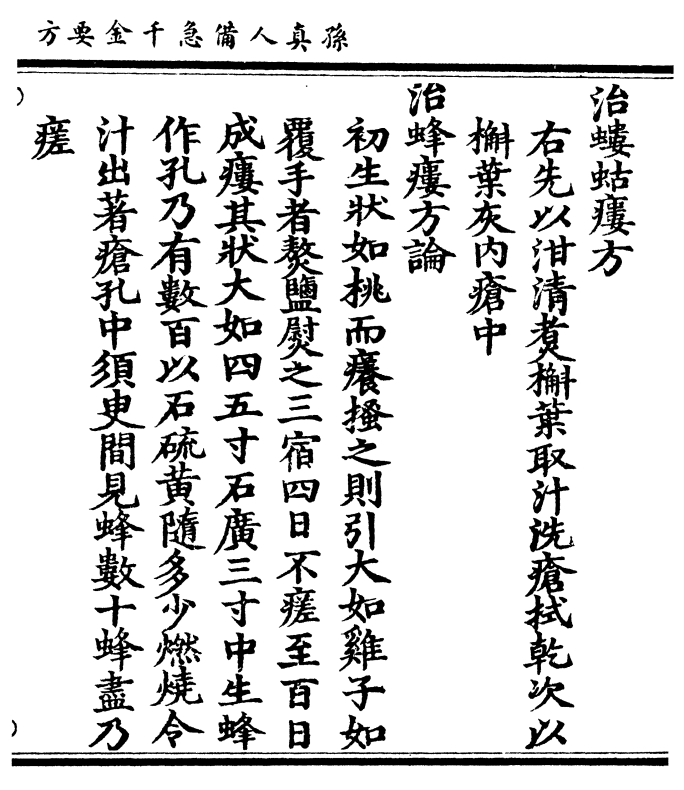 孫真人備急千金要方
治螻蛄瘻方
右先以泔清煑槲葉取汁洗瘡拭乾次以
槲葉灰内瘡中
治蜂瘻方論
初生狀如桃而癢搔之則引大如雞子如
覆手者熬鹽熨之三宿四日不瘥至百日
成瘻其狀大如四五寸石廣三寸中生蜂
作孔乃有數百以石硫黄隨多少燃燒令
汁出著瘡孔中須臾間見蜂數十蜂盡乃
瘥